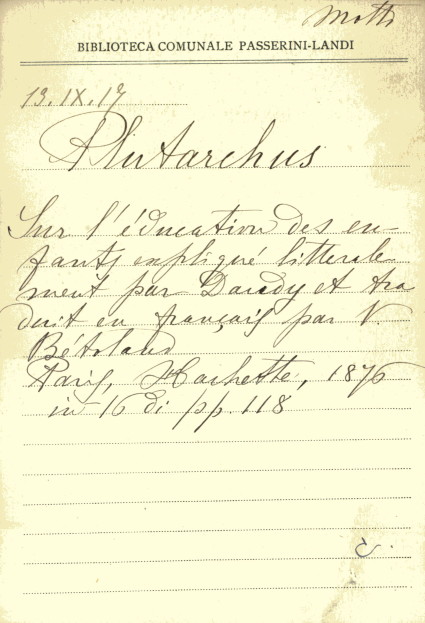 Motti
BIBLIOTECA COMUNALE PASSERINI-LANDI
13.IX.17
Plutarchus
Sur l'éducation des en-
fants expliqué litterale-
ment par Dandy et tra
duit en français par V.
Bétoland
Paris, Hachette, 1876
in 16 di pp. 118
c.